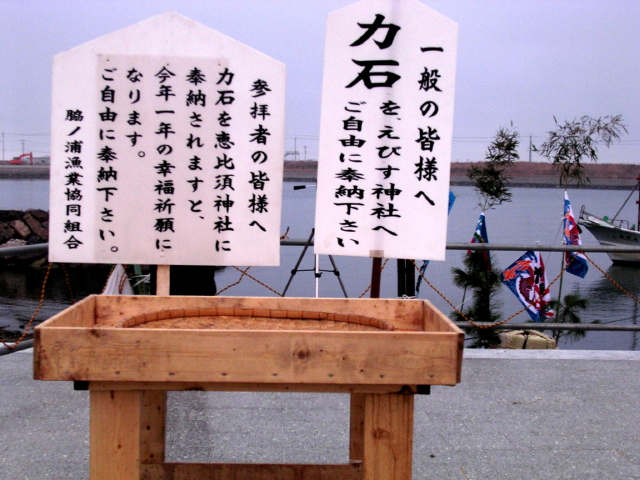 一般の皆様へ
力石を、えびす神社へ
ご自由に奉納下さい
参拝者の皆様へ
力石を恵比須神社に
奉納されますと、
今年一年の幸福祈願に
なります。
ご自由に奉納下さい。
脇ノ浦漁業協同組合